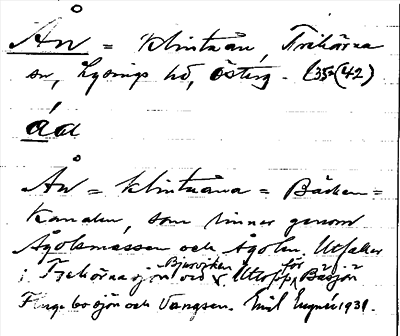 Ån = Klintaån, Trehörna
sn, Lysings hd, Österg. (35-(42)
åa
Ån = Klintaåna = Bäcken =
Kanalen, som rinner genom
Ågolsmossen och Ågoln. Utfaller
i Trehörnasjön vid Bjursviken Utlopp för Bosjön
och Vangsen. Emil 1931.